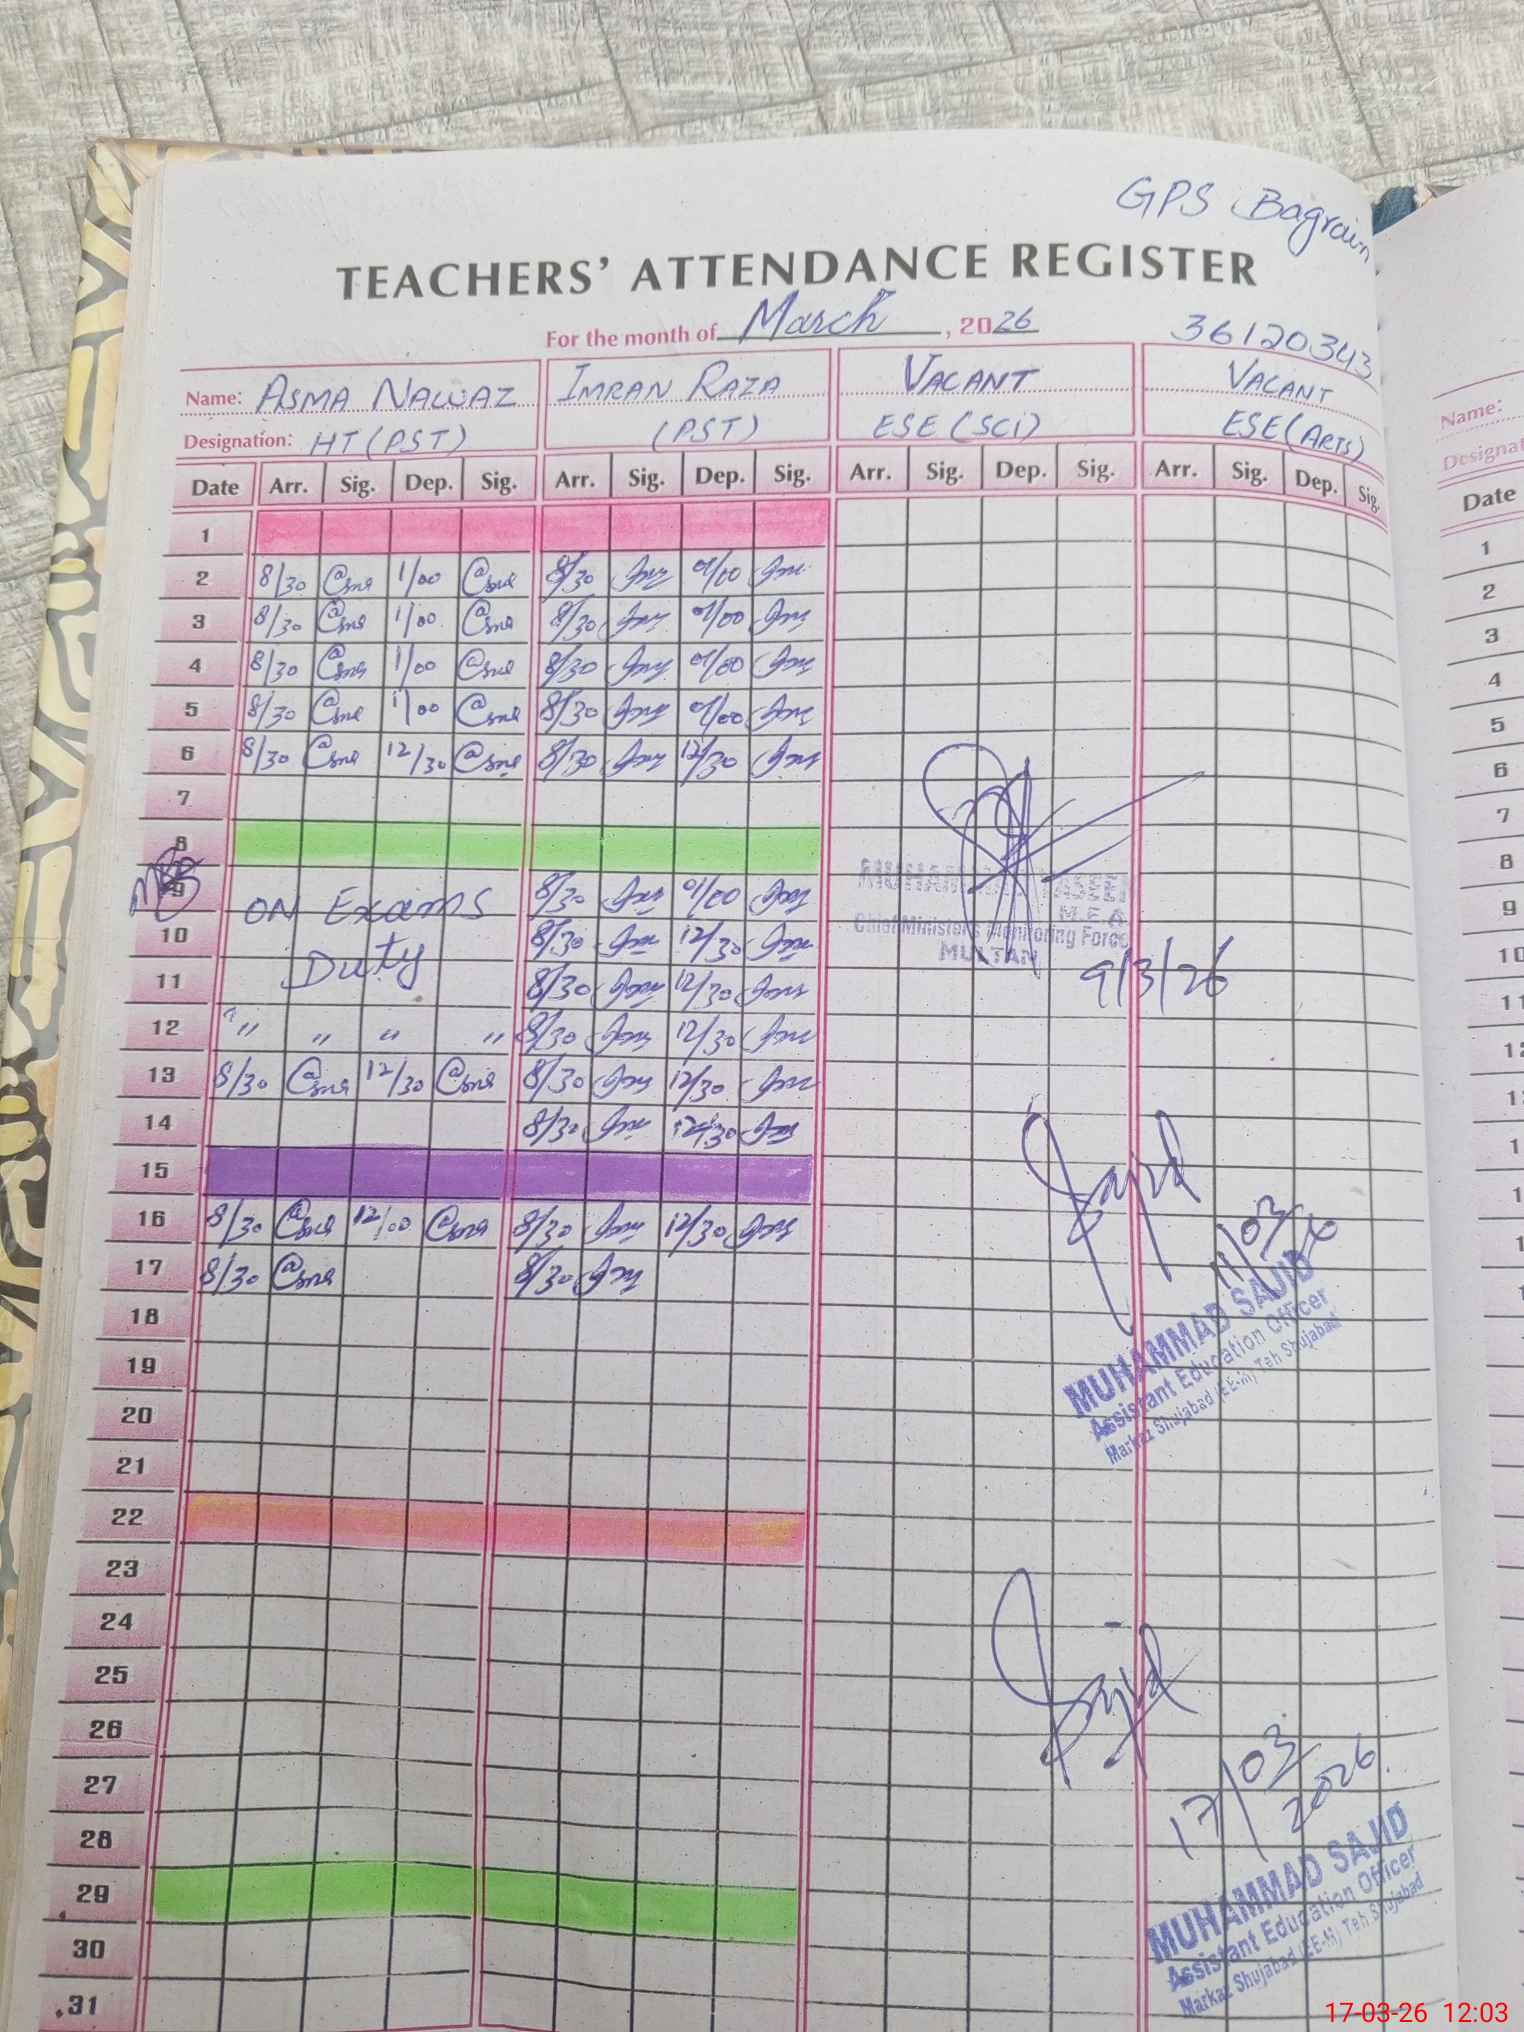 GPS Bagrain
TEACHERS' ATTENDANCE REGISTER
For the month of March, 2026
36120343
Name: ASMA NAWAZ IMRAN RAZA VACANT VACANT
Designation: HT (PST) (PST) ESE (SCI) ESE (ARTS)
Date Arr. Sig. Dep. Sig. Arr. Sig. Dep. Sig. Arr. Sig. Dep. Sig. Arr. Sig. Dep. Sig.
1
2 8/30 Asma 1/00 Asma 8/30 01/00
3 8/30 Asma 1/00 Asma 8/30 01/00
4 8/30 Asma 1/00 Asma 8/30 01/00
5 8/30 Asma 1/00 Asma 8/30 01/00
6 8/30 Asma 12/30 Asma 8/30 12/30
7
8
9 ON Exams 8/30 01/00
10 Duty 8/30 12/30
11 8/30 12/30
12 " " " " 8/30 12/30
13 8/30 Asma 12/30 Asma 8/30 12/30
14 8/30 12/30
15
16 8/30 Asma 12/00 Asma 8/30 12/30
17 8/30 Asma 8/30
18
19
20
21
22
23
24
25
26
27
28
29
30
31
Chief Minister's Monitoring Force
MULTAN
9/3/26
Sajid
11/03/26
MUHAMMAD SAJID
Assistant Education Officer
Markaz Shujabad (EE-M) Teh Shujabad
Sajid
17/03/2026
MUHAMMAD SAJID
Assistant Education Officer
Markaz Shujabad (EE-M) Teh Shujabad
Name:
Date
1
2
3
4
5
6
7
8
9
10
11
17-03-26 12:03